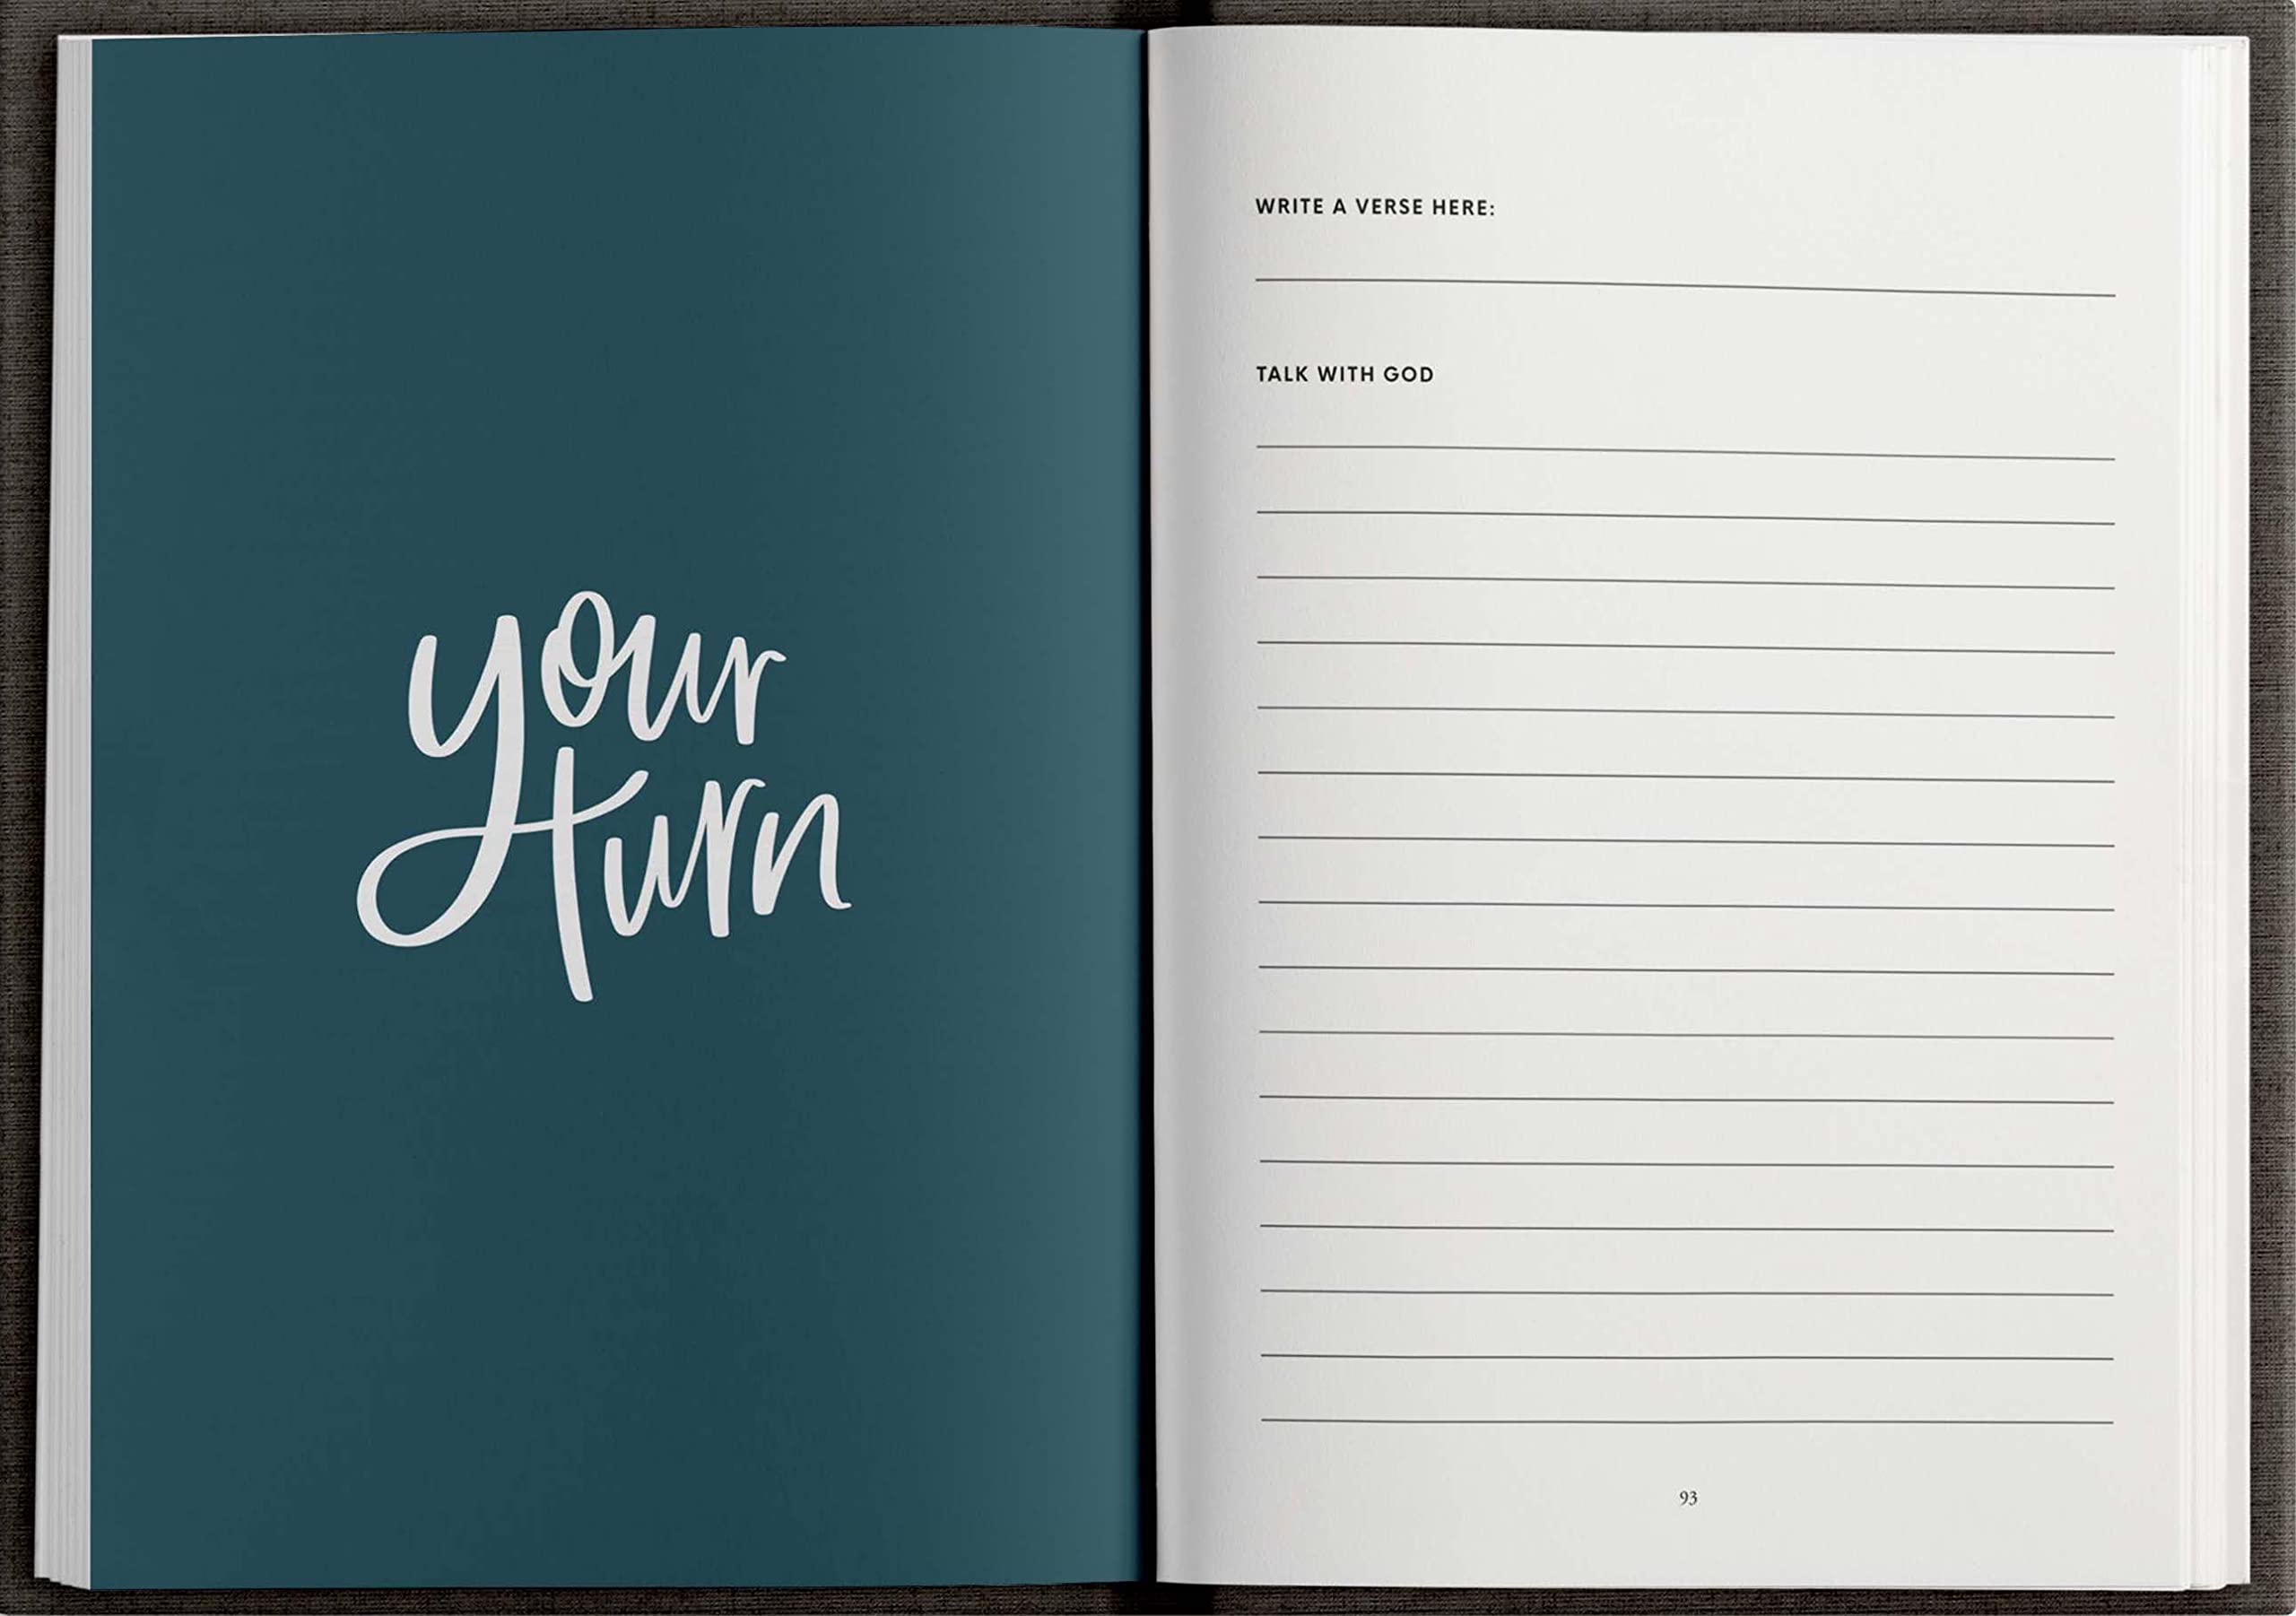 your
turn
WRITE A VERSE HERE:
TALK WITH GOD
93